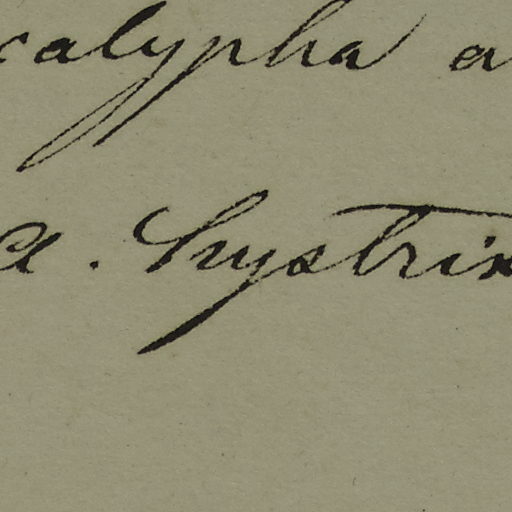 calypha a
a. hystrix